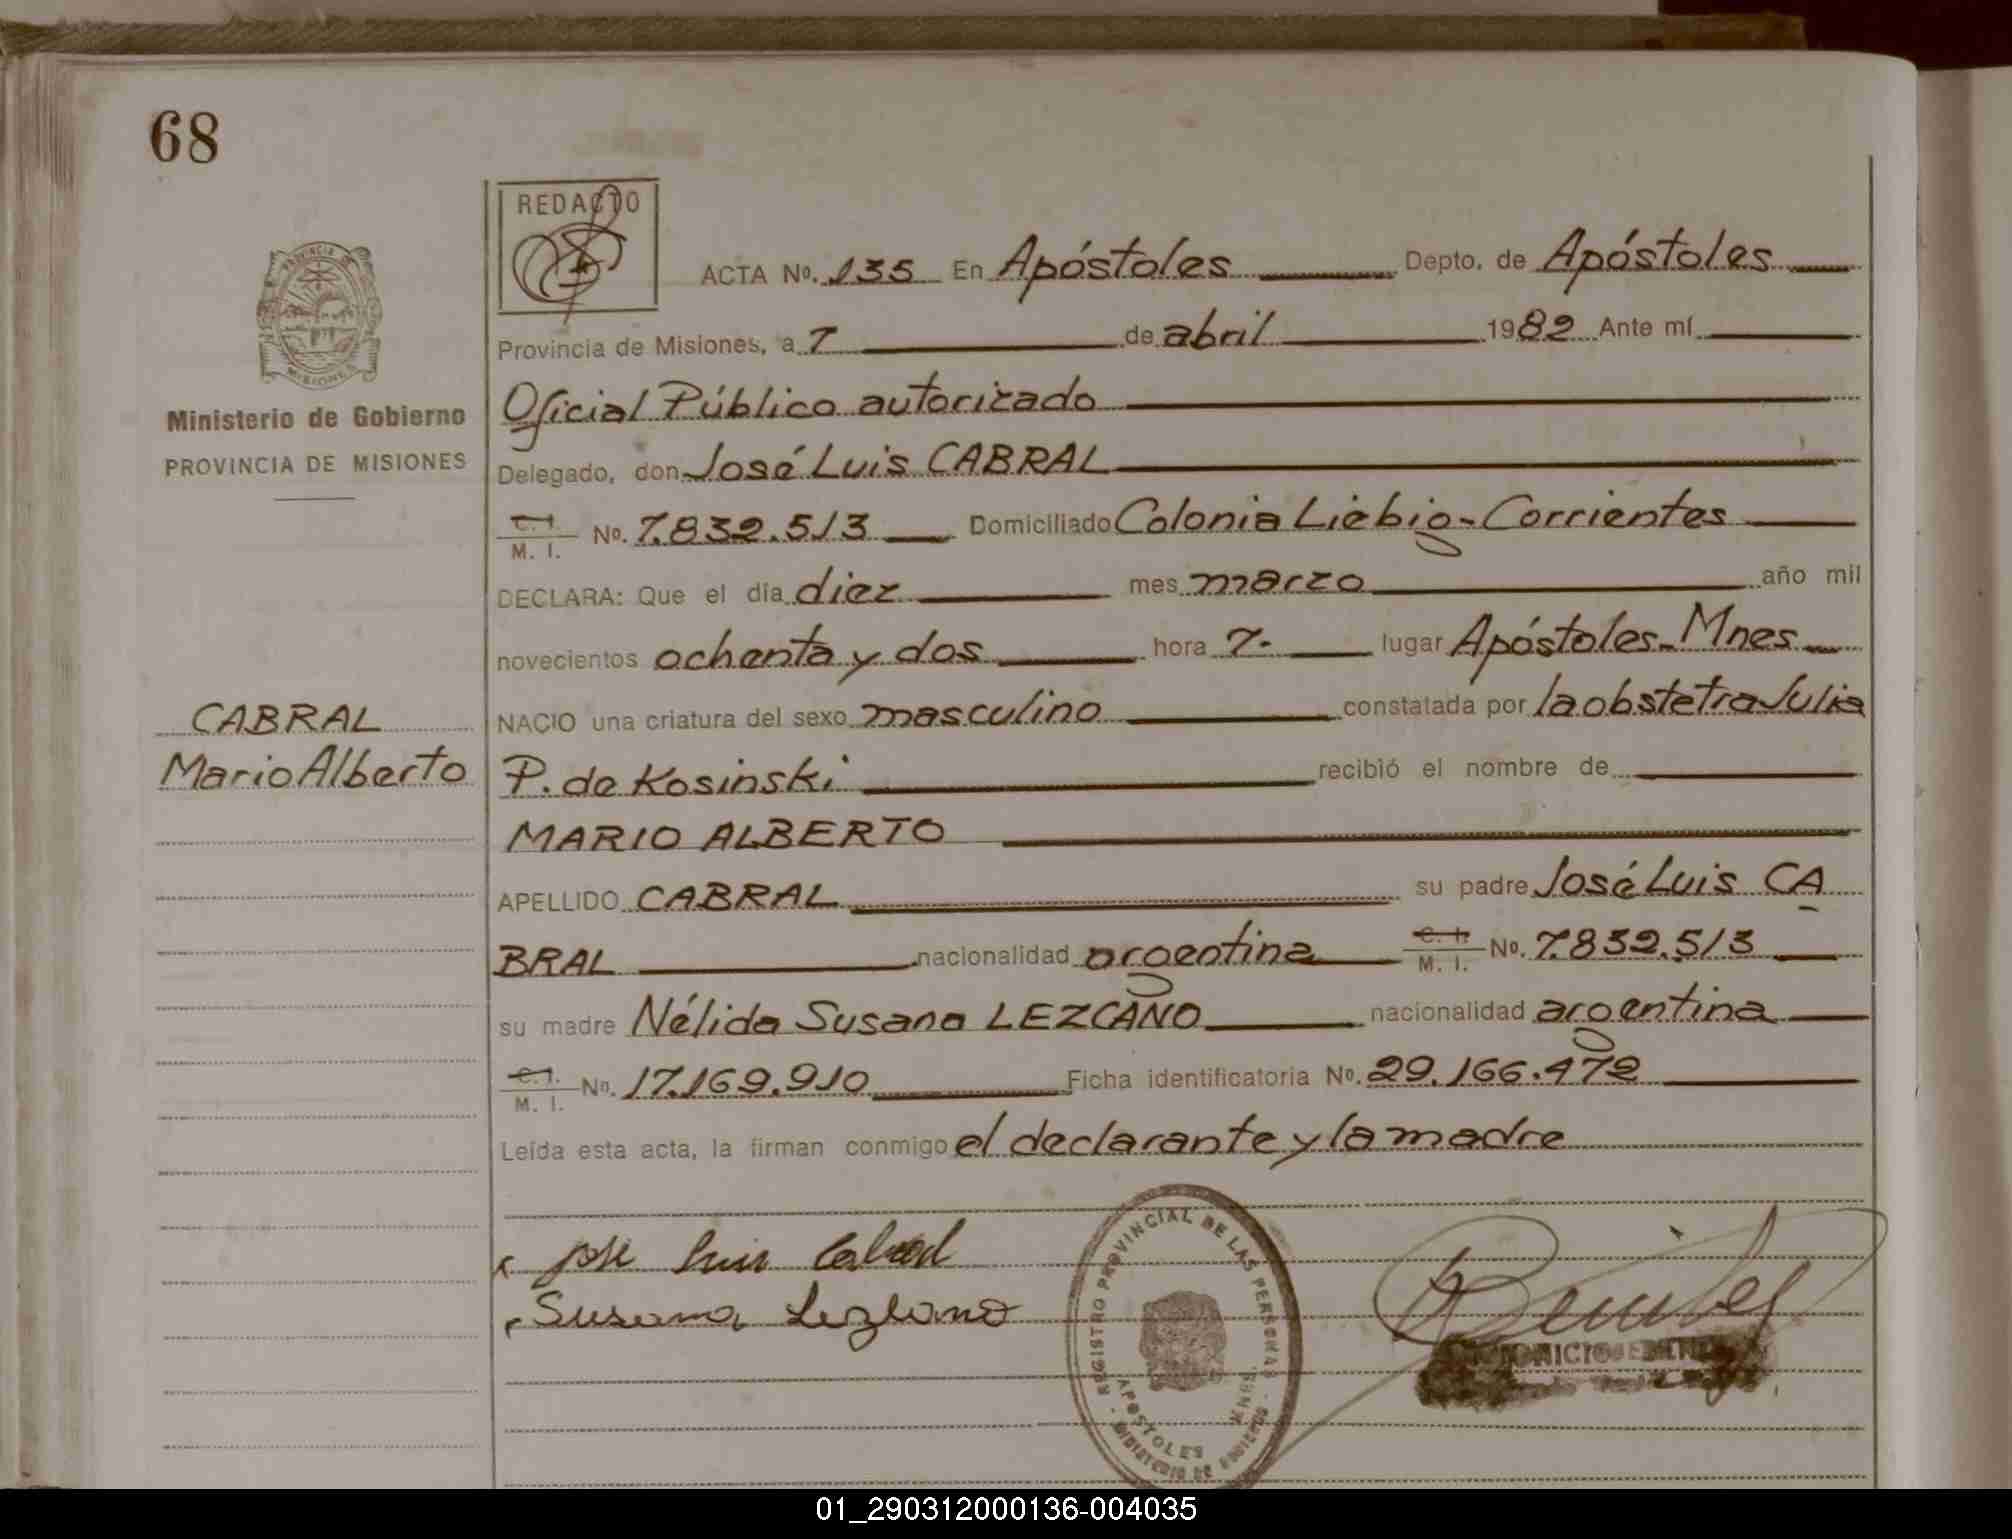 68
REDACTO
ACTA No. 135 En Apóstoles Depto. de Apóstoles
Provincia de Misiones, a 7 de abril 1982 Ante mí
Ministerio de Gobierno
PROVINCIA DE MISIONES
Oficial Público autorizado
Delegado, don José Luis CABRAL
C. I. M. I. No. 7.832.513 Domiciliado Colonia Liebig - Corrientes
DECLARA: Que el día diez mes marzo año mil
novecientos ochenta y dos hora 7. lugar Apóstoles - Mnes
CABRAL
Mario Alberto
NACIO una criatura del sexo masculino constatada por la obstetra Julia
P. de Kosinski recibió el nombre de
MARIO ALBERTO
APELLIDO CABRAL su padre José Luis CA
BRAL nacionalidad argentina C. I. M. I. No. 7.832.513
su madre Nélida Susana LEZCANO nacionalidad argentina
C. I. M. I. No. 17.169.910 Ficha identificatoria No. 29.166.472
Leída esta acta, la firman conmigo el declarante y la madre
José Luis Cabral
Susana Lezcano
REGISTRO PROVINCIAL DE LAS PERSONAS
APOSTOLES MNES.
MINISTERIO DE GOBIERNO
01_290312000136-004035